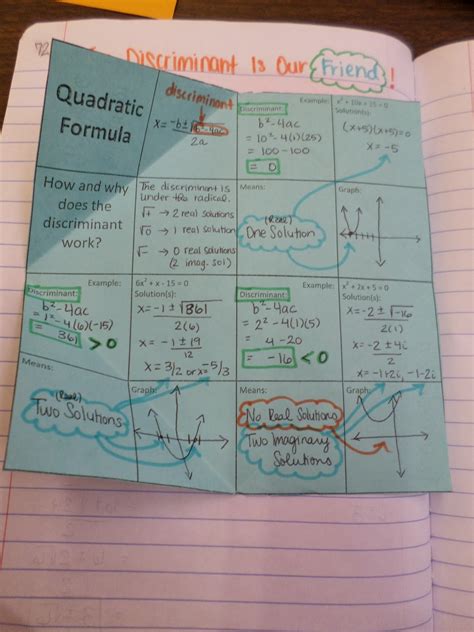 72
Discriminant Is Our Friend!
Quadratic
Formula
discriminant
x = -b ± √b²-4ac
2a
Example:
Discriminant:
b²-4ac
= 10²-4(1)(25)
= 100-100
= 0
x² + 10x + 25 = 0
Solution(s):
(x+5)(x+5)=0
x = -5
How and why
does the
discriminant
work?
The discriminant is
under the radical.
√+ → 2 real solutions
√0 → 1 real solution
√- → 0 real solutions
(2 imag. sol)
Means:
(Real)
One Solution
Graph:
Example:
Discriminant:
b²-4ac
= 1²-4(6)(-15)
= 361 > 0
6x² + x - 15 = 0
Solution(s):
x = -1 ± √361
2(6)
x = -1 ± 19
12
x = 3/2 or x = -5/3
Example:
Discriminant:
b²-4ac
= 2²-4(1)(5)
= 4-20
= -16 < 0
x² + 2x + 5 = 0
Solution(s):
x = -2 ± √-16
2(1)
x = -2 ± 4i
2
x = -1+2i, -1-2i
Means:
(Real)
Two Solutions
Graph:
Means:
No Real Solutions
Two Imaginary
Solutions
Graph: